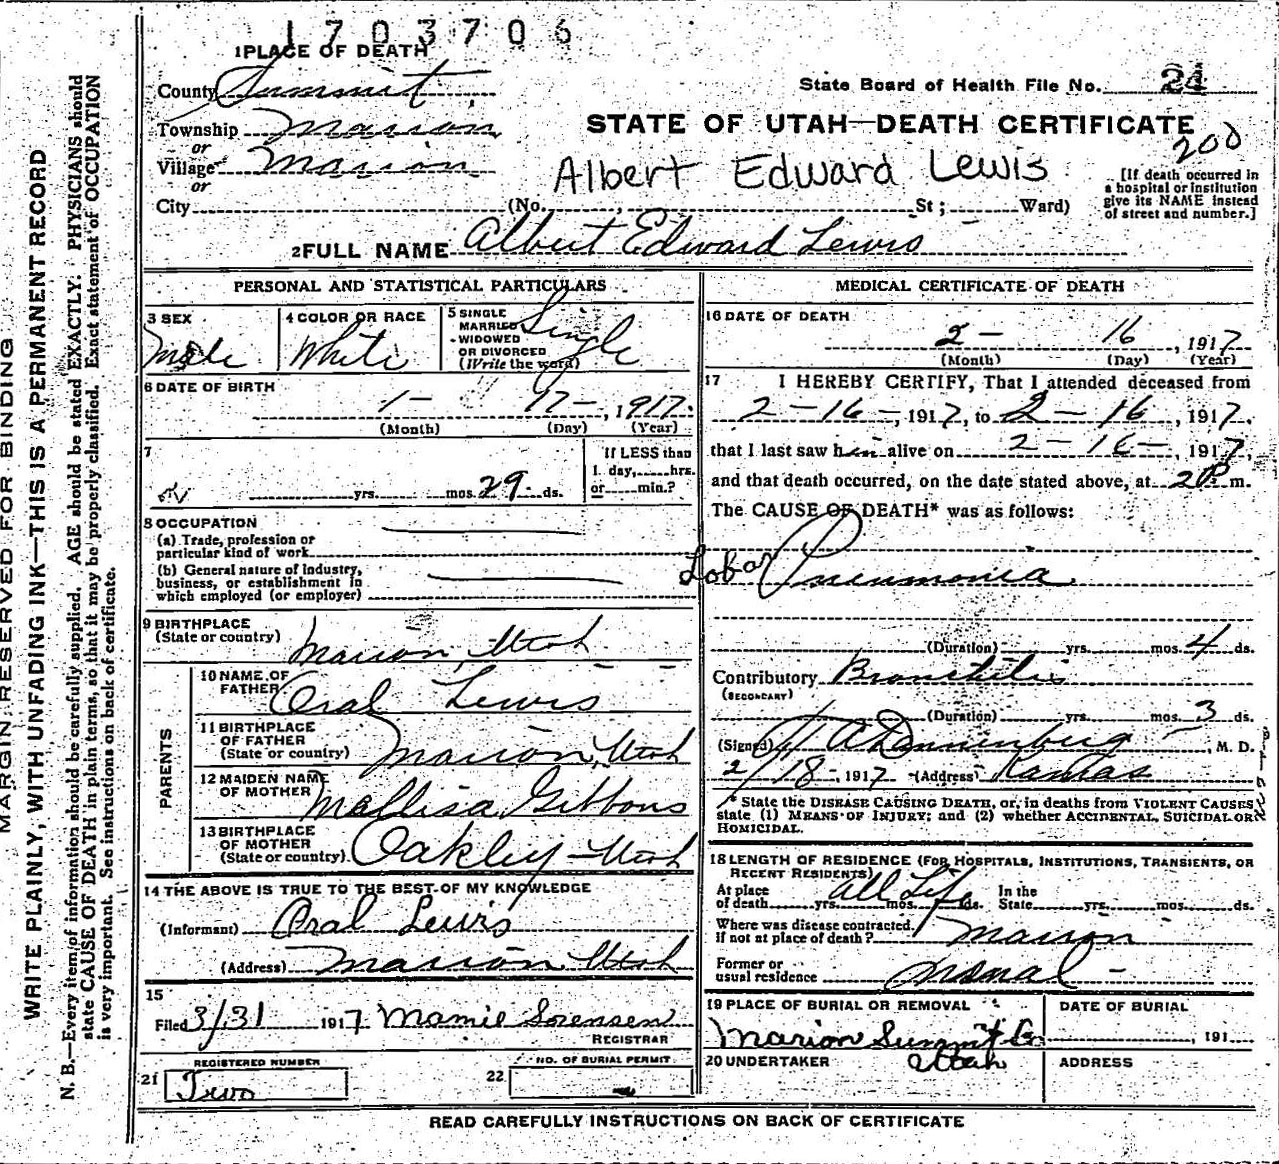 1703706
1 PLACE OF DEATH
County Summit
State Board of Health File No. 24
Township Marion
or
Village Marion
or
STATE OF UTAH—DEATH CERTIFICATE
200
Albert Edward Lewis
City (No. St; Ward)
[If death occurred in
a hospital or institution
give its NAME instead
of street and number.]
2 FULL NAME Albert Edward Lewis
PERSONAL AND STATISTICAL PARTICULARS
3 SEX
Male
4 COLOR OR RACE
White
5 SINGLE
MARRIED
WIDOWED
OR DIVORCED
(Write the word)
Single
6 DATE OF BIRTH
1 - 17 -, 1917.
(Month) (Day) (Year)
7
yrs. mos. 29 ds.
If LESS than
1 day, hrs.
or min.?
8 OCCUPATION
(a) Trade, profession or
particular kind of work
(b) General nature of industry,
business, or establishment in
which employed (or employer)
9 BIRTHPLACE
(State or country)
Marion, Utah
PARENTS
10 NAME OF
FATHER
Oral Lewis
11 BIRTHPLACE
OF FATHER
(State or country)
Marion, Utah
12 MAIDEN NAME
OF MOTHER
Mellisa Gibbons
13 BIRTHPLACE
OF MOTHER
(State or country)
Oakley - Utah
14 THE ABOVE IS TRUE TO THE BEST OF MY KNOWLEDGE
(Informant) Oral Lewis
(Address) Marion, Utah
15
Filed 3/31 1917 Mamie Sorensen
REGISTRAR
REGISTERED NUMBER
21 Two
NO. OF BURIAL PERMIT
22
MEDICAL CERTIFICATE OF DEATH
16 DATE OF DEATH
2 - 16, 1917
(Month) (Day) (Year)
17 I HEREBY CERTIFY, That I attended deceased from
2 - 16 -, 1917, to 2 - 16, 1917.
that I last saw him alive on 2 - 16 -, 1917,
and that death occurred, on the date stated above, at m.
The CAUSE OF DEATH* was as follows:
Lobar Pneumonia
(Duration) yrs. mos. 4 ds.
Contributory Bronchitis
(SECONDARY)
(Duration) yrs. mos. 3 ds.
(Signed) Dannenberg, M. D.
2/18 - 1917 (Address) Kamas
* State the DISEASE CAUSING DEATH, or, in deaths from VIOLENT CAUSES
state (1) MEANS OF INJURY; and (2) whether ACCIDENTAL, SUICIDAL OR
HOMICIDAL.
18 LENGTH OF RESIDENCE (FOR HOSPITALS, INSTITUTIONS, TRANSIENTS, OR
RECENT RESIDENTS)
At place
of death yrs. mos. ds.
all Life
In the
State yrs. mos. ds.
Where was disease contracted,
if not at place of death? Marion
Former or
usual residence
19 PLACE OF BURIAL OR REMOVAL
Marion Summit Co.
Utah
DATE OF BURIAL
, 191
20 UNDERTAKER
ADDRESS
READ CAREFULLY INSTRUCTIONS ON BACK OF CERTIFICATE
MARGIN RESERVED FOR BINDING
WRITE PLAINLY, WITH UNFADING INK—THIS IS A PERMANENT RECORD
N. B.—Every item of information should be carefully supplied. AGE should be stated EXACTLY. PHYSICIANS should
state CAUSE OF DEATH in plain terms, so that it may be properly classified. Exact statement of OCCUPATION
is very important. See instructions on back of certificate.